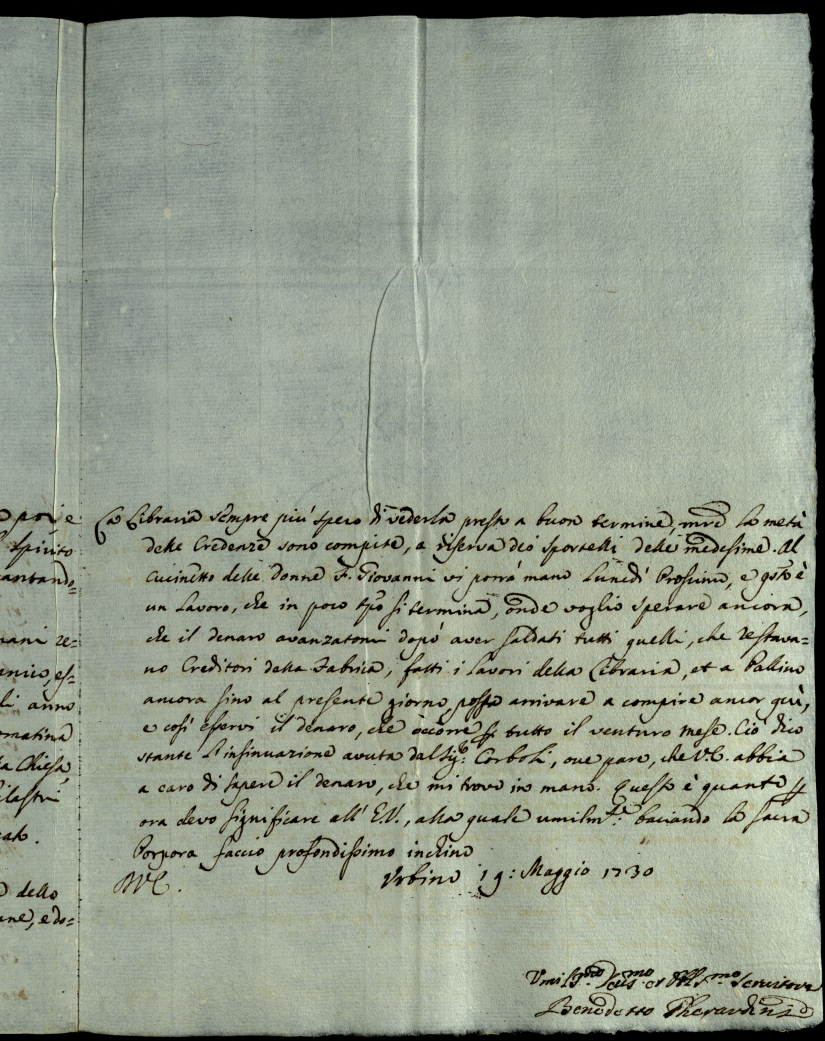 La Libraria sempre più spero di vederla presto a buon termine, mre la metà
delle Credenze sono compite, a riserva dei sportelli delle medesime. Al
cucinetto delle donne F. Giovanni vi porrà mano Lunedì Prossimo, e gsto è
un Lavoro, che in poco tpo si termina, onde voglio sperare ancora,
che il denaro avanzatomi dopò aver saldati tutti quelli, che restava=
no Creditori della Fabrica, fatti i lavori della Libraria, et a Pallino
ancora sino al presente giorno, possa arrivare a compire ancor qui,
e così esservi il denaro, che occorre p tutto il venturo mese. Ciò dico
stante l'insinuazione avuta dal Sigr Corboli, ove pare, che V.E. abbia
a caro di sapere il denaro, che mi trovo in mano. Questo è quanto p
ora devo significare all' E.V., alla quale umilmte baciando la sacra
Porpora faccio profondissimo inchino
Urbino 19: Maggio 1730
Umilmo et Obblmo Servitore
Benedetto
poi e
Spirito
cantando=
mani re=
li anno
matina
la Chiesa
ilastri
dello
ane, e do=